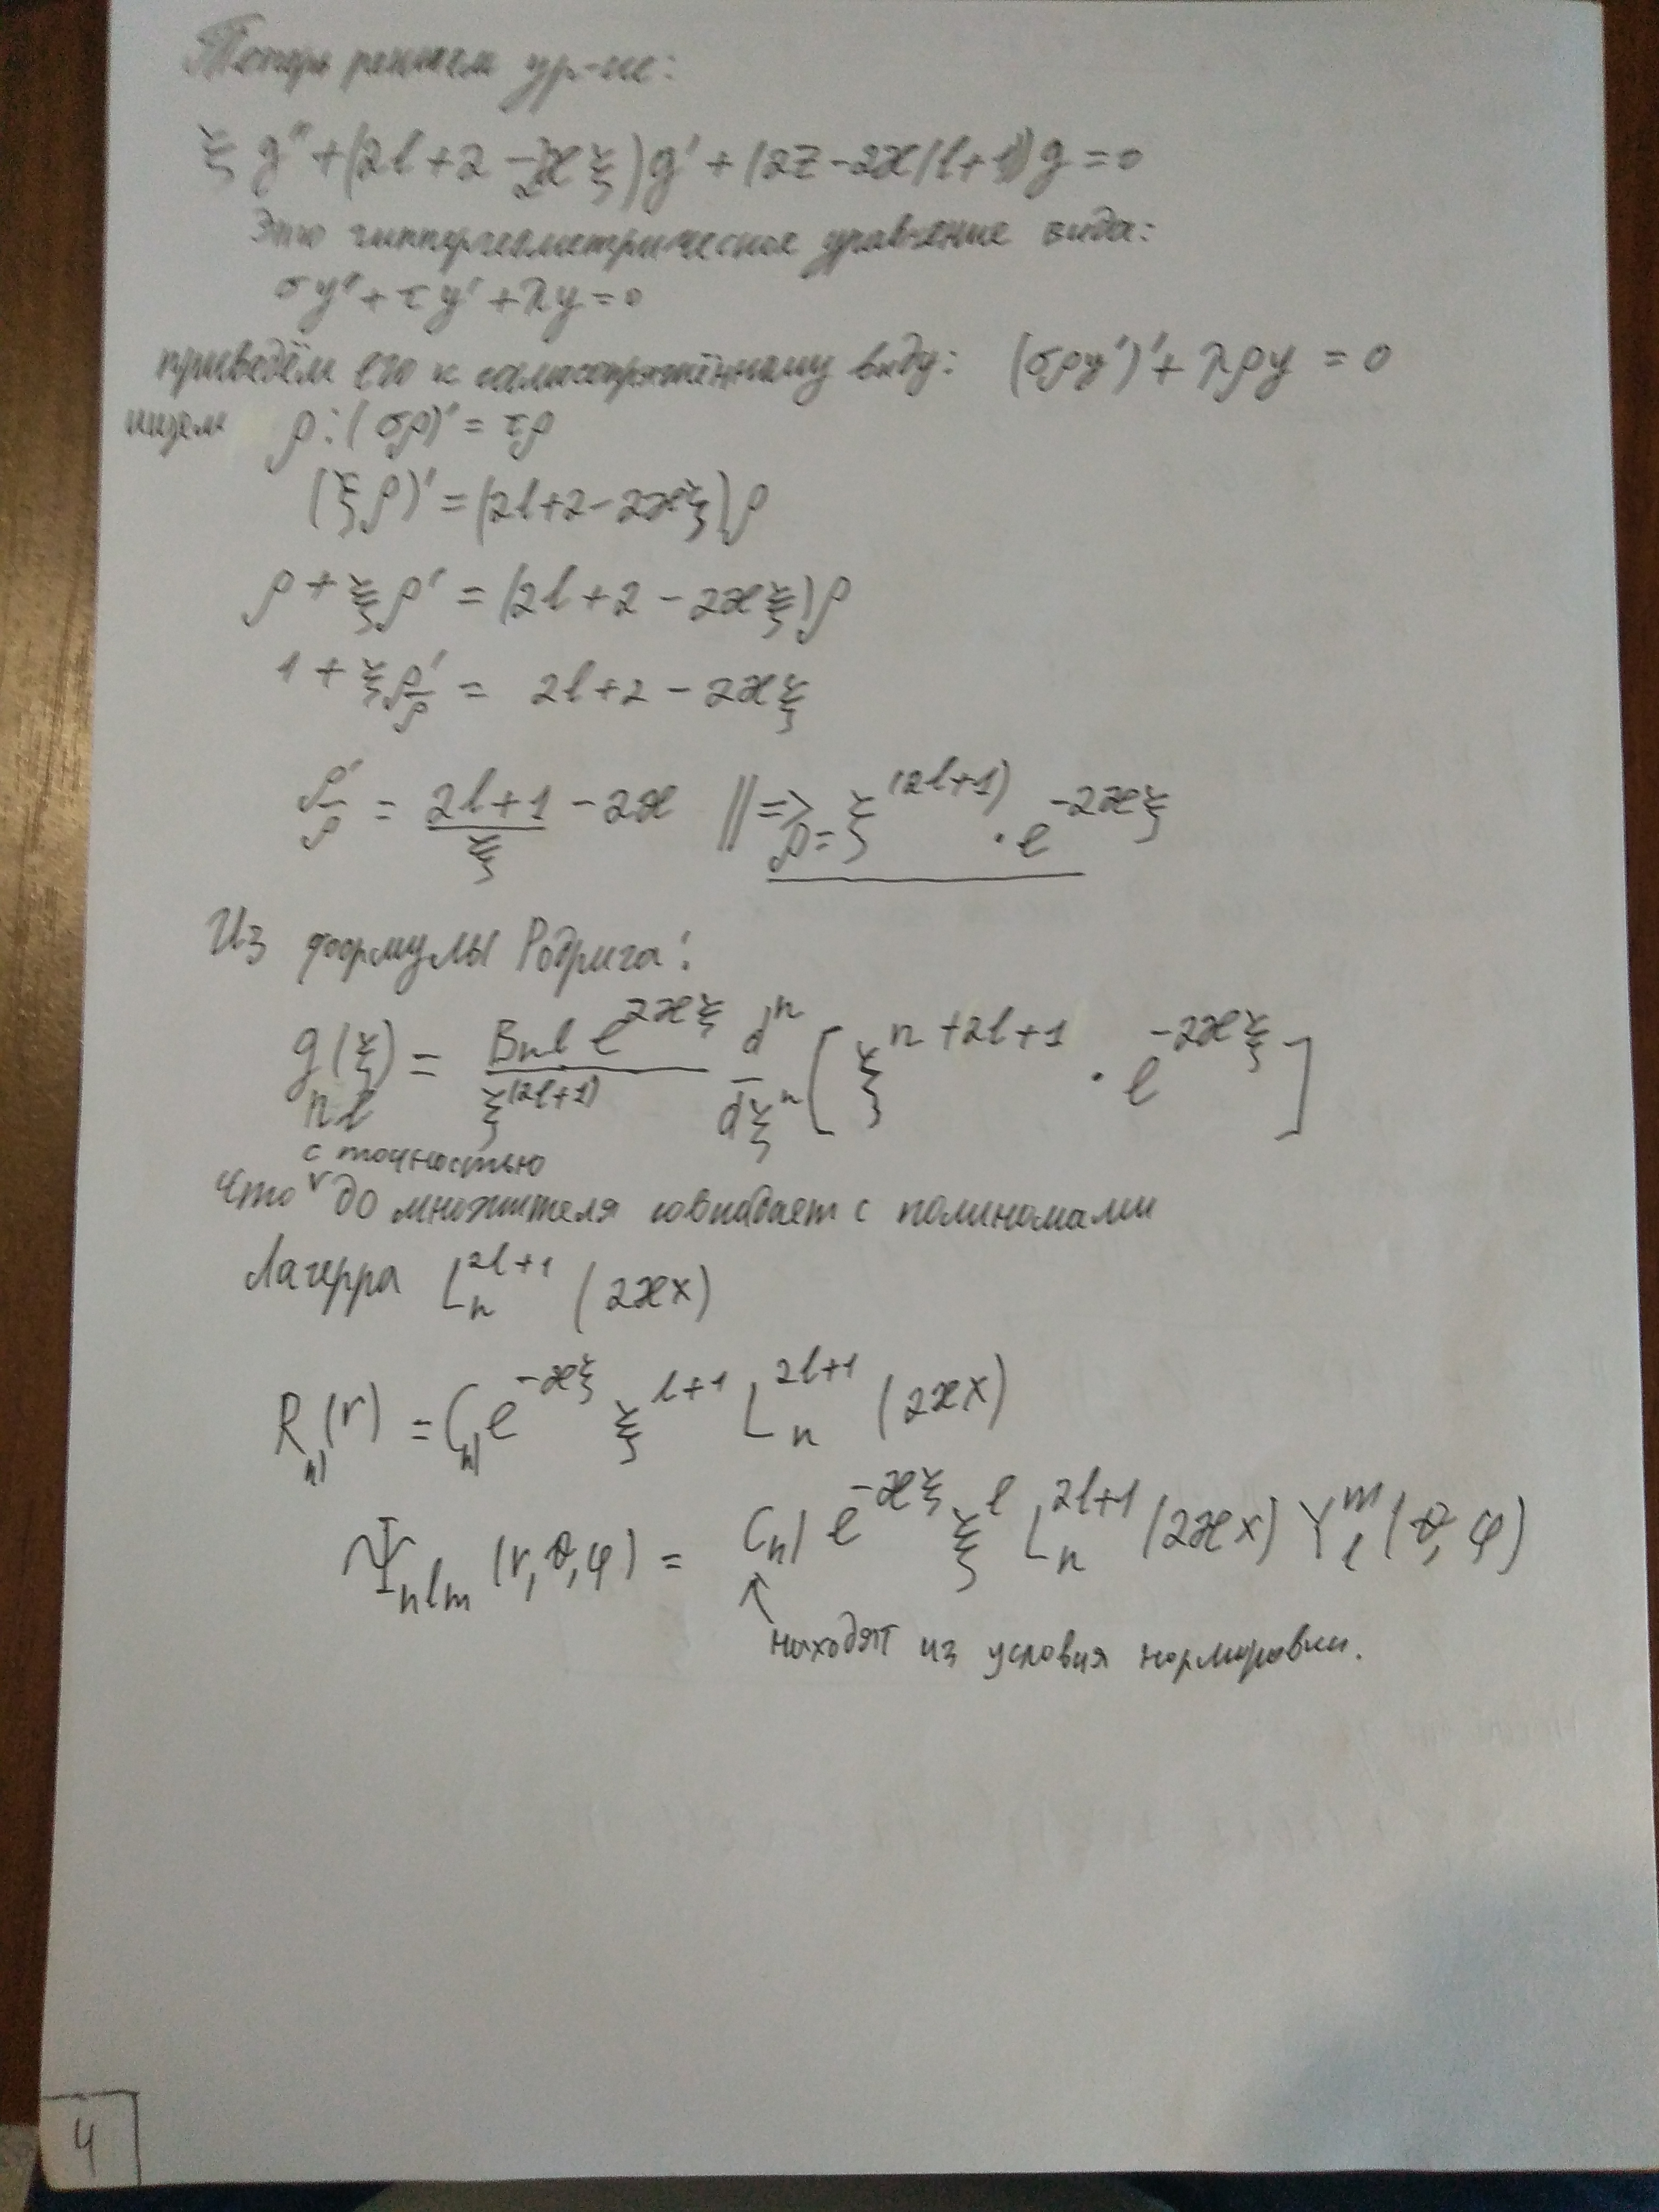 Теперь решаем ур-ие:
ξ g″ + (2l + 2 - 2ϰ ξ) g′ + (2Z - 2ϰ(l+1)) g = 0
Это гиппергеометрическое уравнение вида:
σy″ + τy′ + λy = 0
приведём его к самосопряжённому виду: (σρy′)′ + λρy = 0
ищем ρ: (σρ)′ = τρ
(ξρ)′ = (2l+2-2ϰξ)ρ
ρ + ξρ′ = (2l + 2 - 2ϰξ)ρ
1 + ξ ρ′/ρ = 2l+2 - 2ϰξ
ρ′/ρ = (2l+1)/ξ - 2ϰ || => ρ = ξ^(2l+1) · e^(-2ϰξ)
Из формулы Родрига:
g_nl(ξ) = B_nl e^(2ϰξ) / ξ^(2l+1) d^n/dξ^n [ξ^(n+2l+1) · e^(-2ϰξ)]
что с точностью до множителя совпадает с полиномами
Лагерра L_n^(2l+1) (2ϰx)
R_nl(r) = C_nl e^(-ϰξ) ξ^(l+1) L_n^(2l+1) (2ϰx)
Ψ_nlm (r,θ,φ) = C_nl e^(-ϰξ) ξ^l L_n^(2l+1) (2ϰx) Y_l^m (θ,φ)
↑ находят из условия нормировки.
4